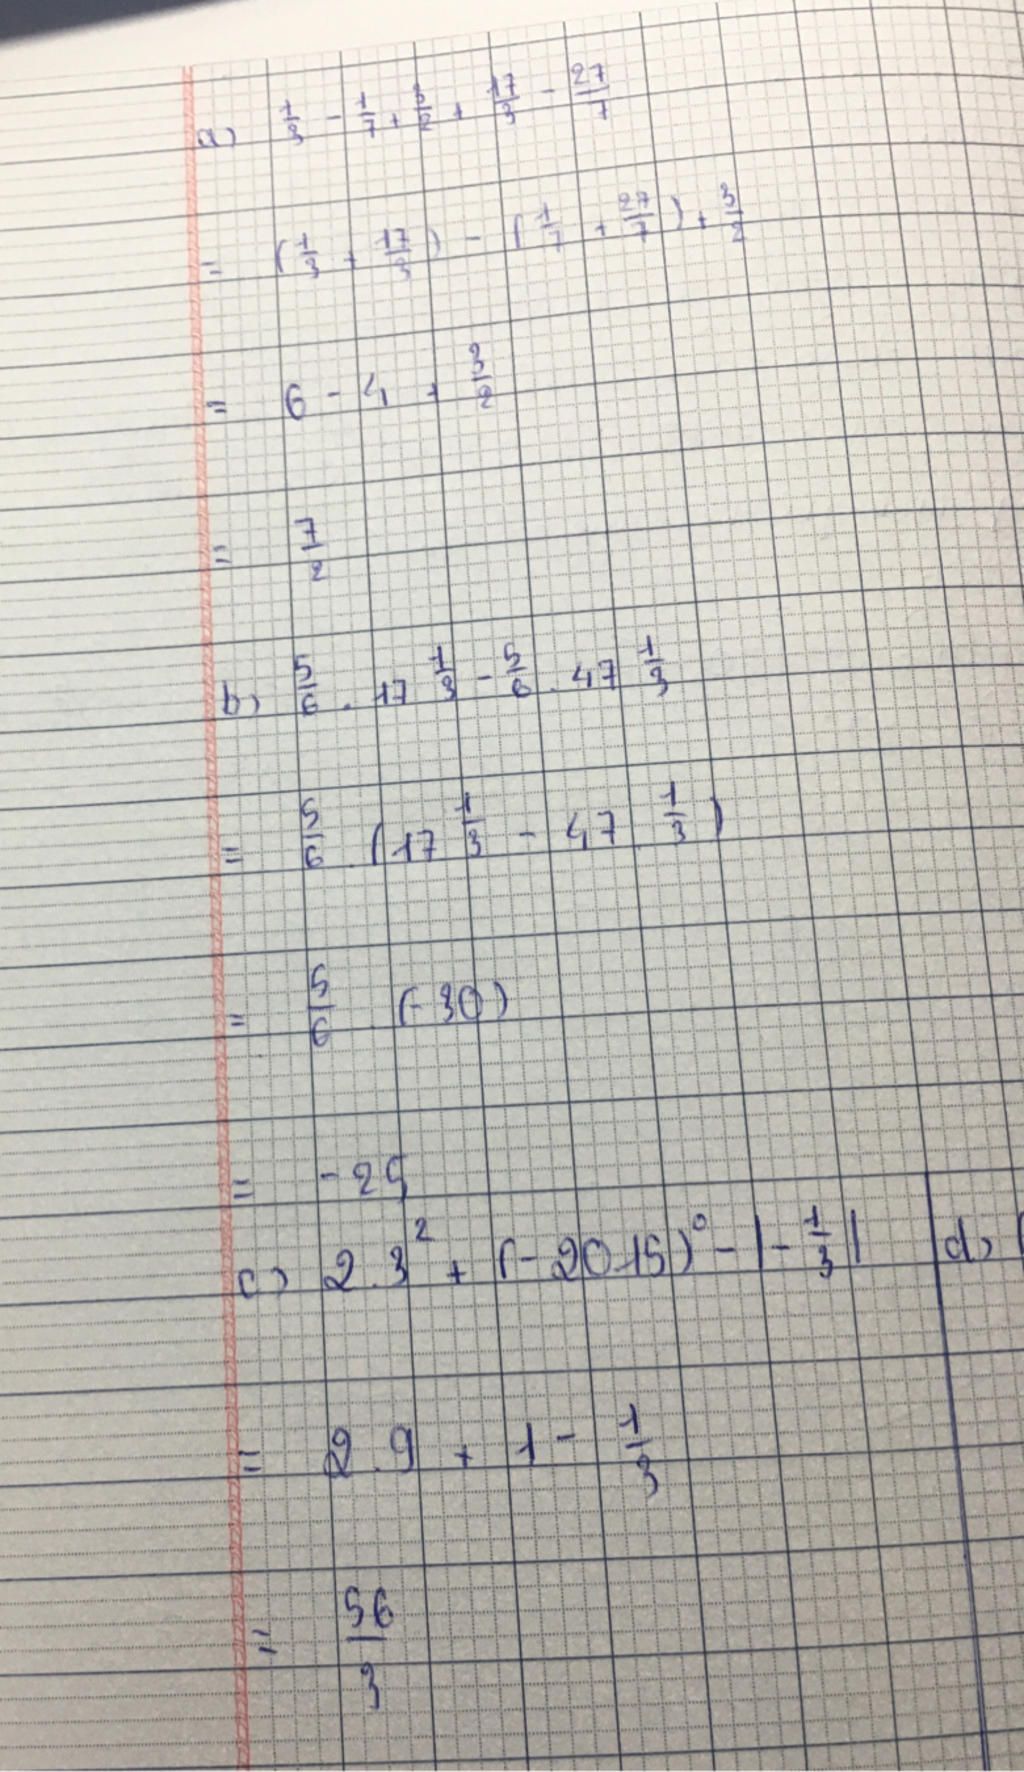 a) 1/3 - 1/7 + 3/2 + 17/3 - 27/7
= (1/3 + 17/3) - (1/7 + 27/7) + 3/2
= 6 - 4 + 3/2
= 7/2
b) 5/6 . 17 1/3 - 5/6 . 47 1/3
= 5/6 . (17 1/3 - 47 1/3)
= 5/6 . (-30)
= -25
c) 2.3² + (-2015)⁰ - |-1/3|
= 2.9 + 1 - 1/3
= 56/3
d)